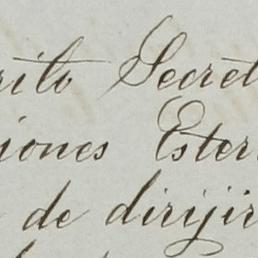 rito Secret
iones Ester
de dirijir